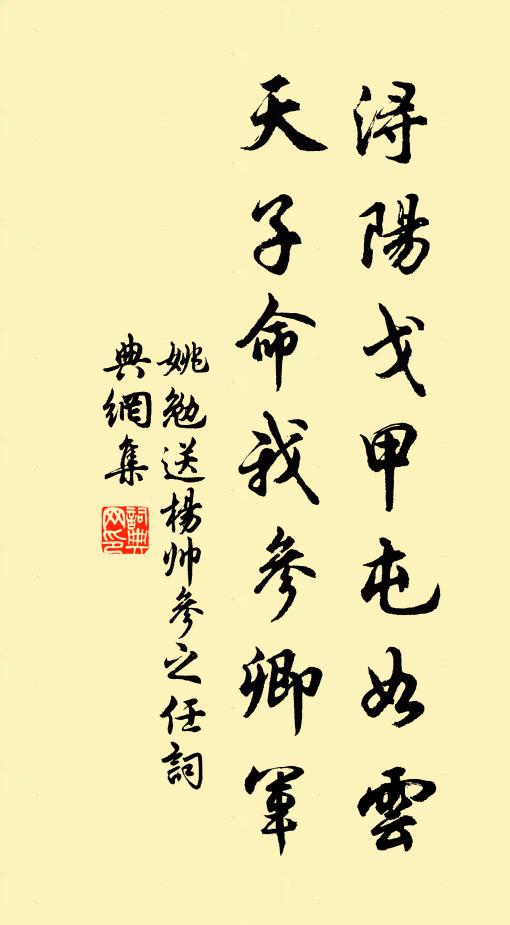 潯陽戈甲屯如雲
天子命我參卿軍
姚勉送楊帅參之任詞
典網集
詞典
网印